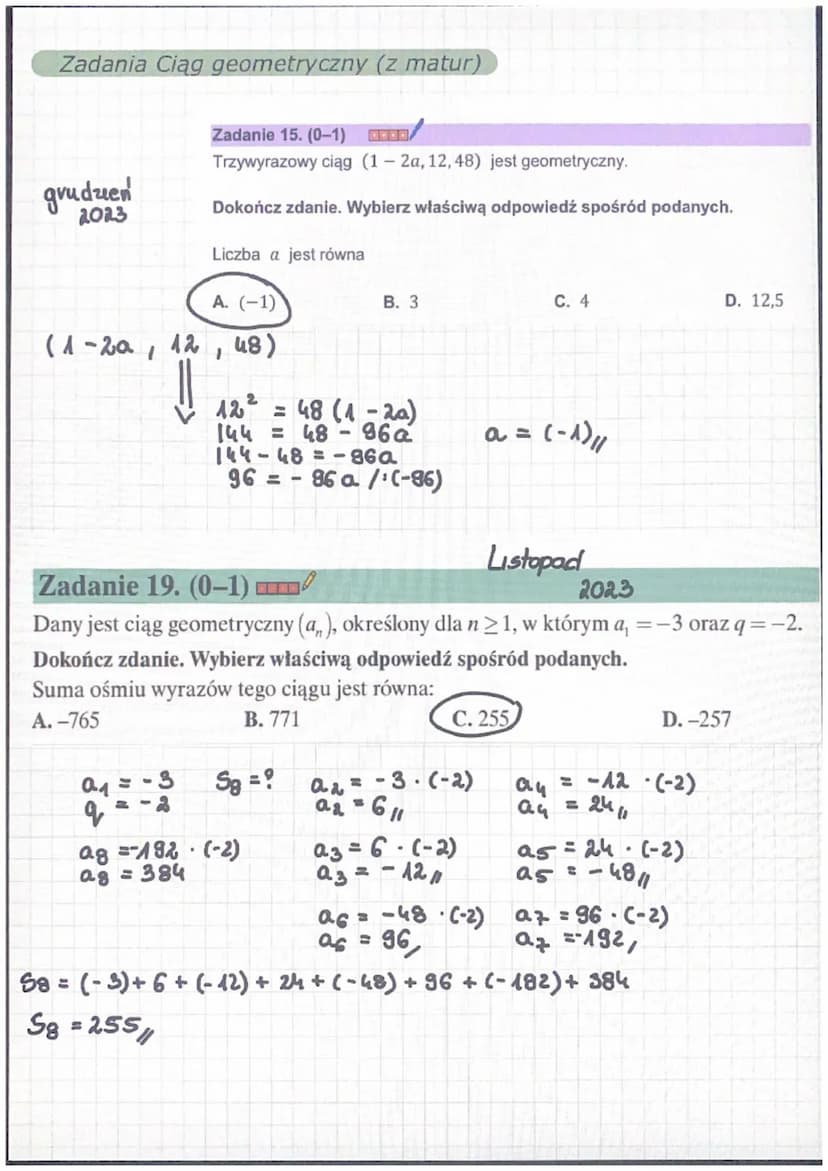 Zadania Ciąg geometryczny (z matur)
Zadanie 15. (0–1)
Trzywyrazowy ciąg (1 − 2a, 12, 48) jest geometryczny.
grudzień
2023
Dokończ zdanie. Wybierz właściwą odpowiedź spośród podanych.
Liczba a jest równa
A. (−1) B. 3 C. 4 D. 12,5
(1 - 2a , 12 , 48)
12² = 48 (1 - 2a)
144 = 48 - 96a
144 - 48 = - 96a
96 = - 96a /:(-96)
a = (-1)
Listopad
2023
Zadanie 19. (0–1)
Dany jest ciąg geometryczny (aₙ), określony dla n ≥ 1, w którym a₁ = −3 oraz q = −2.
Dokończ zdanie. Wybierz właściwą odpowiedź spośród podanych.
Suma ośmiu wyrazów tego ciągu jest równa:
A. −765 B. 771 C. 255 D. −257
a₁ = - 3 S₈ = ? a₂ = - 3 · (-2) a₄ = -12 · (-2)
q = - 2 a₂ = 6 a₄ = 24
a₈ = -192 · (-2) a₃ = 6 · (-2) a₅ = 24 · (-2)
a₈ = 384 a₃ = - 12 a₅ = - 48
a₆ = -48 · (-2) a₇ = 96 · (-2)
a₆ = 96 a₇ = -192
S₈ = (-3) + 6 + (-12) + 24 + (-48) + 96 + (-192) + 384
S₈ = 255